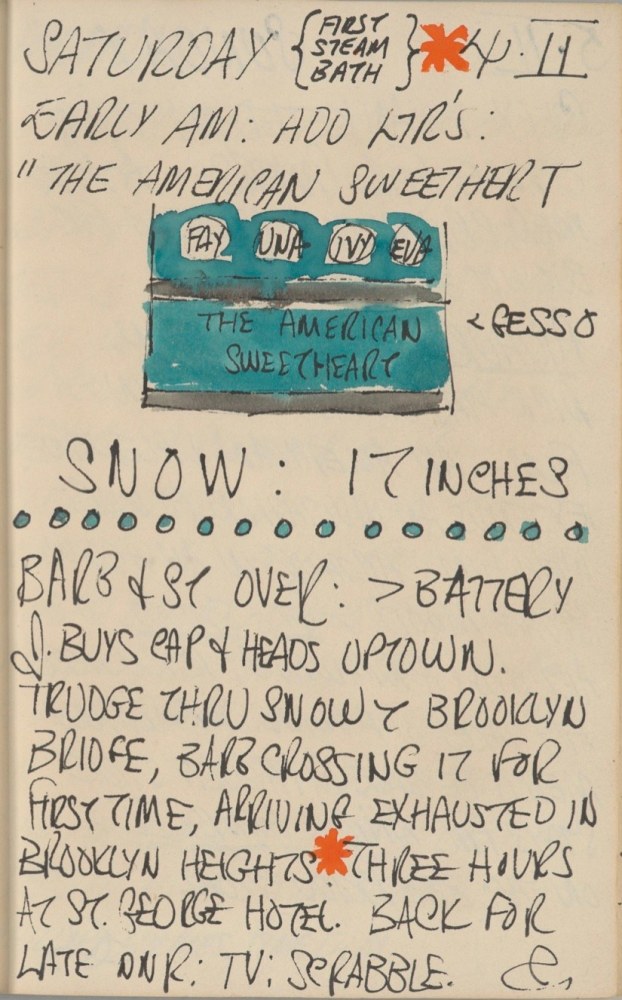 SATURDAY {FIRST STEAM BATH} 4·II
EARLY AM: ADD LTR'S:
"THE AMERICAN SWEETHERT
FAY UNA IVY EVA
THE AMERICAN
SWEETHEART
< GESSO
SNOW: 17 INCHES
BARB & ST OVER: > BATTERY
J. BUYS CAP & HEADS UPTOWN.
TRUDGE THRU SNOWY BROOKLYN
BRIDGE, BARB CROSSING IT FOR
FIRST TIME, ARRIVING EXHAUSTED IN
BROOKLYN HEIGHTS. THREE HOURS
AT ST. GEORGE HOTEL. BACK FOR
LATE DNR: TV: SCRABBLE.